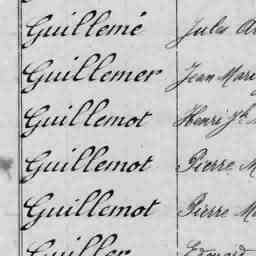 Guillemé Jules
Guillemer Jean Mari
Guillemot Henri Jh
Guillemot Pierre M
Guillemot Pierre M
Guiller Edouard